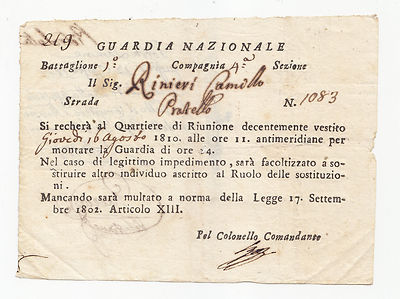 219
GUARDIA NAZIONALE
Battaglione 1º Compagnia 4ª Sezione
Il Sig. Rinieri Camillo
Strada Pratello N. 1083
Si recherà al Quartiere di Riunione decentemente vestito
Giovedì 16 Agosto 1810. alle ore 11. antimeridiane per
montare la Guardia di ore 24.
Nel caso di legittimo impedimento, sarà facoltizzato a so-
stituire altro individuo ascritto al Ruolo delle sostituzio-
ni.
Mancando sarà multato a norma della Legge 17. Settem-
bre 1802. Articolo XIII.
Pel Colonello Comandante